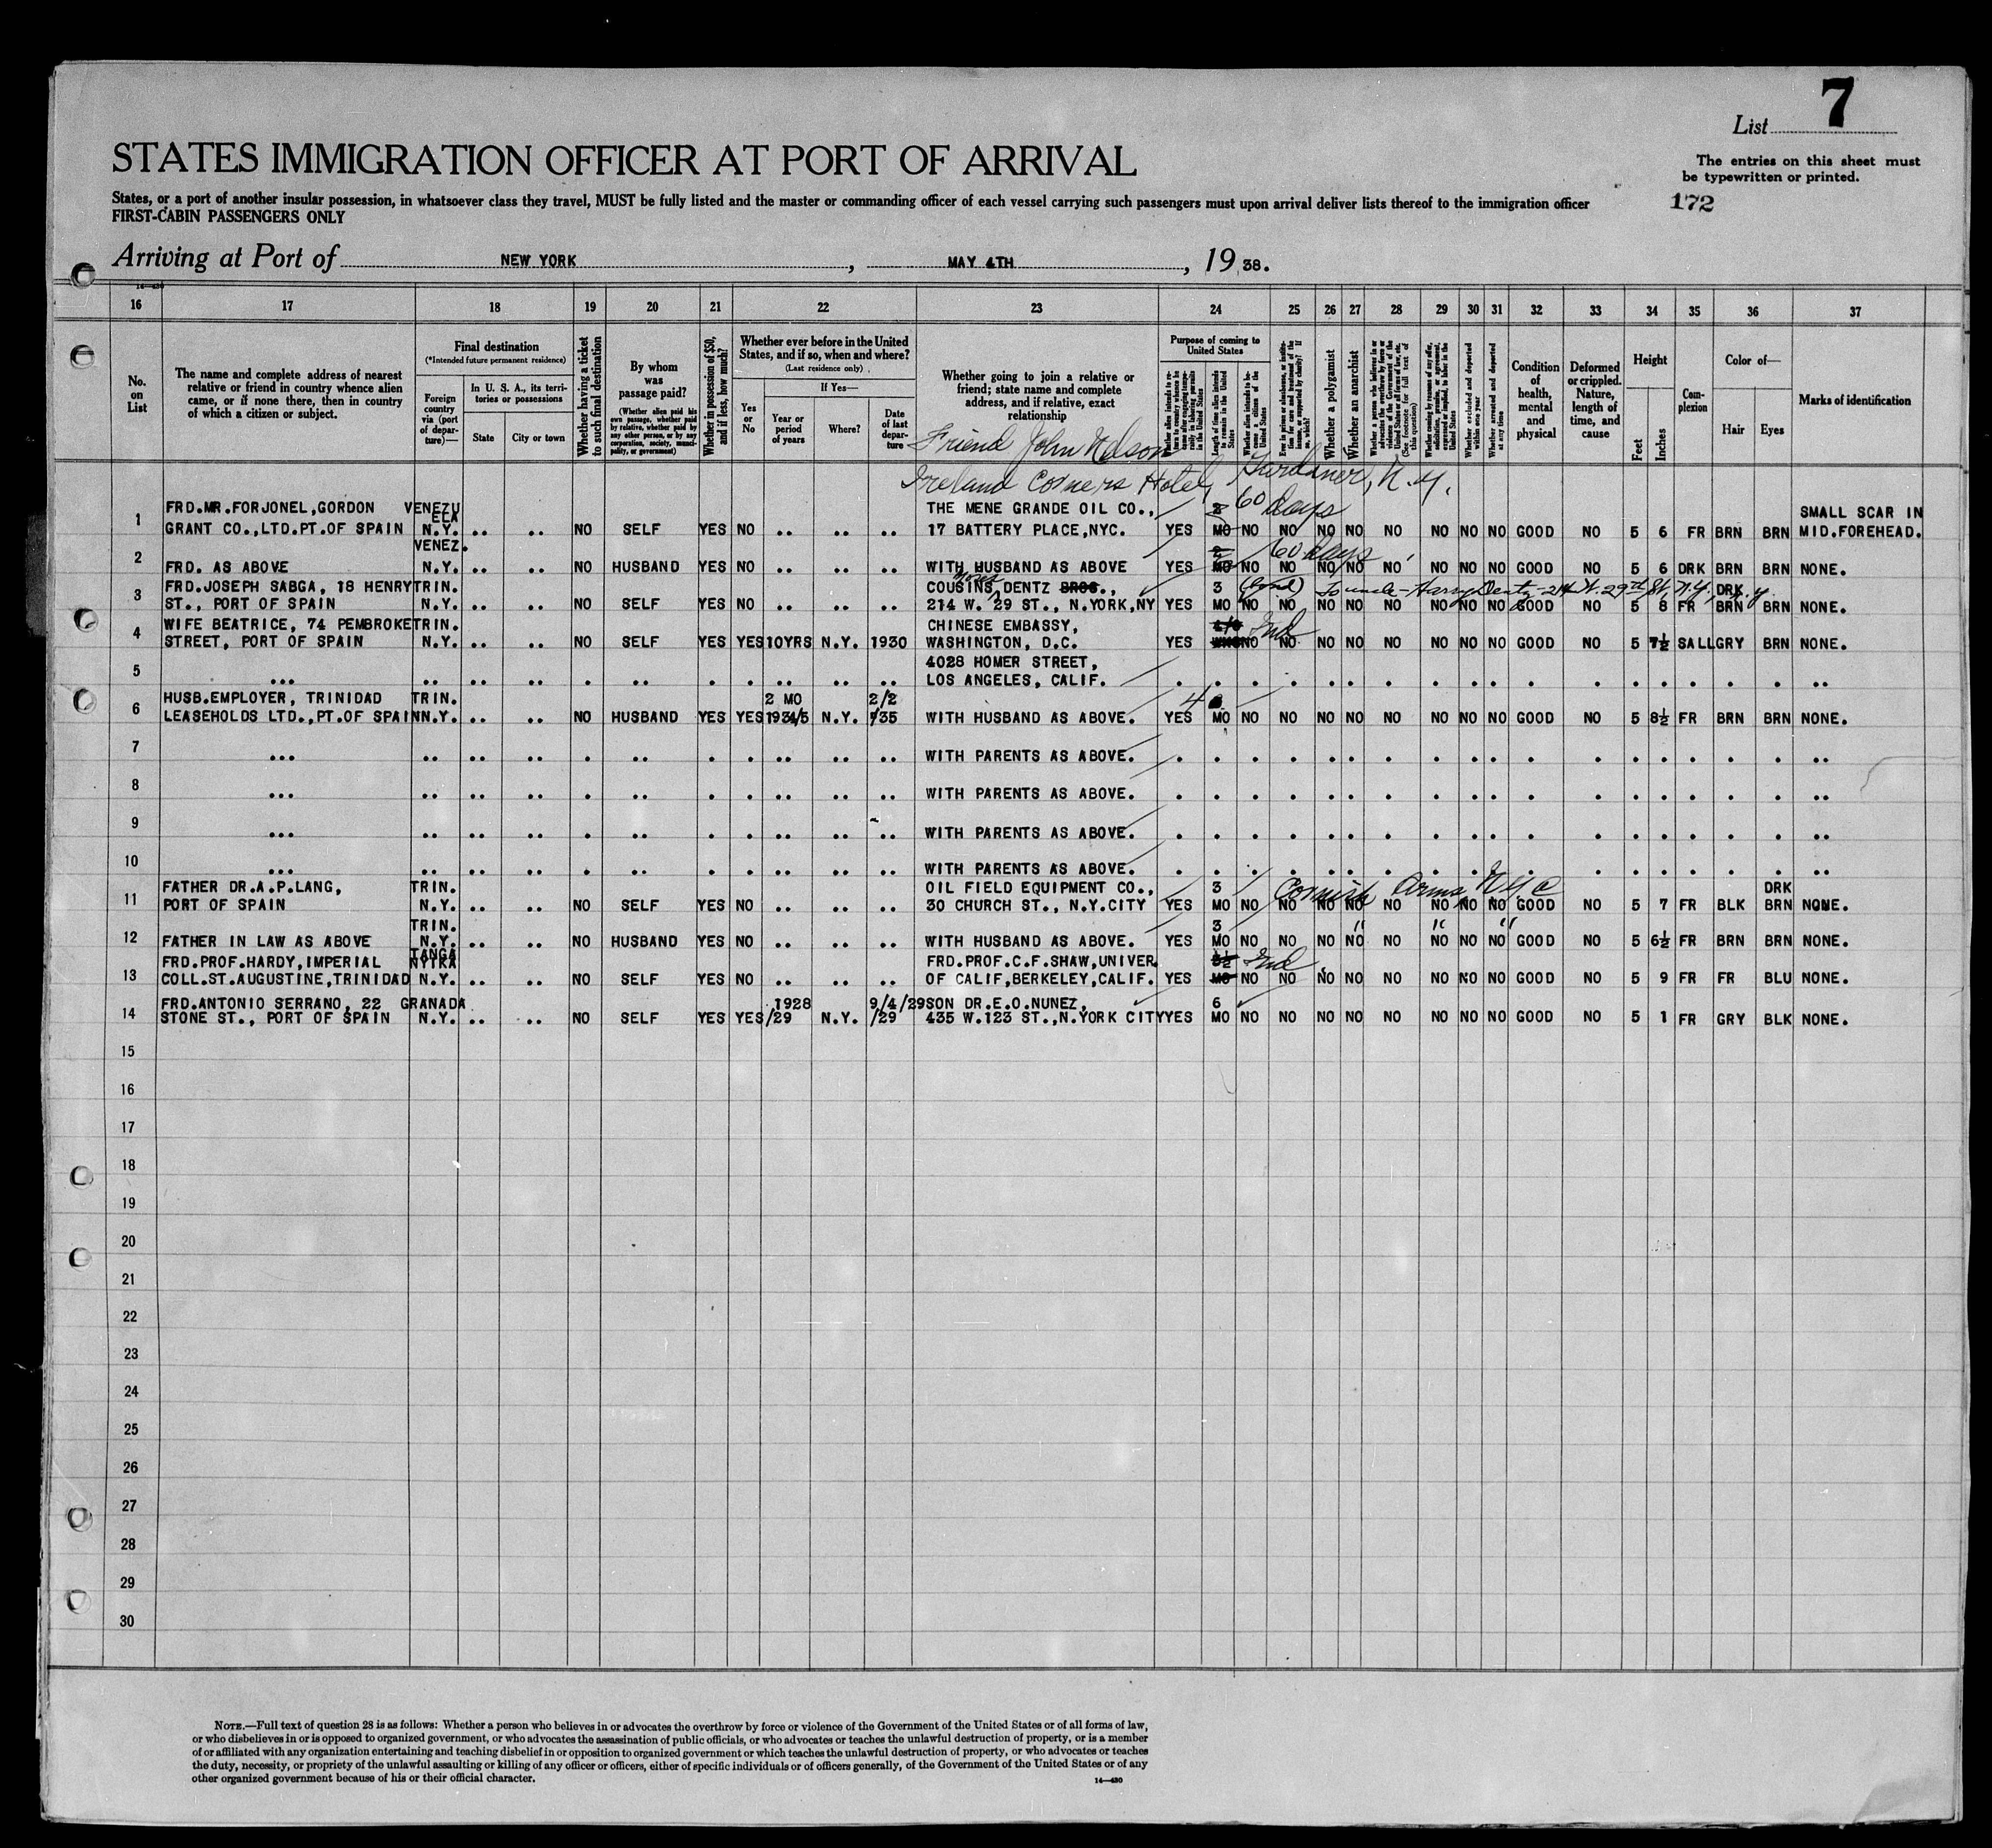 List 7
STATES IMMIGRATION OFFICER AT PORT OF ARRIVAL
The entries on this sheet must
be typewritten or printed.
States, or a port of another insular possession, in whatsoever class they travel, MUST be fully listed and the master or commanding officer of each vessel carrying such passengers must upon arrival deliver lists thereof to the immigration officer
FIRST-CABIN PASSENGERS ONLY
172
Arriving at Port of NEW YORK, MAY 4TH, 19 38.
16 17 18 19 20 21 22 23 24 25 26 27 28 29 30 31 32 33 34 35 36 37
No. on List
The name and complete address of nearest relative or friend in country whence alien came, or if none there, then in country of which a citizen or subject.
Final destination
(*Intended future permanent residence)
Foreign country via (port of departure)—
In U. S. A., its territories or possessions
State
City or town
Whether having a ticket to such final destination
By whom was passage paid?
(Whether alien paid his own passage, whether paid by relative, whether paid by any other person, or by any corporation, society, municipality, or government)
Whether in possession of $50, and if less, how much?
Whether ever before in the United States, and if so, when and where?
(Last residence only)
Yes or No
If Yes—
Year or period of years
Where?
Date of last departure
Whether going to join a relative or friend; state name and complete address, and if relative, exact relationship
Purpose of coming to United States
Length of time alien intends to remain in the United States
Whether alien intends to become a citizen of the United States
Whether a polygamist
Whether an anarchist
Whether excluded and deported within one year
Whether arrested and deported at any time
Condition of health, mental and physical
Deformed or crippled. Nature, length of time, and cause
Height
Feet
Inches
Complexion
Color of—
Hair
Eyes
Marks of identification
Friend John Nelson
Ireland Corners Hotel, Gardiner, N.Y.
FRD.MR.FORJONEL,GORDON VENEZUELA THE MENE GRANDE OIL CO., 2 60 days SMALL SCAR IN
1 GRANT CO.,LTD.PT.OF SPAIN N.Y. .. .. NO SELF YES NO .. .. .. 17 BATTERY PLACE,NYC. YES MO NO NO NO NO NO NO NO NO GOOD NO 5 6 FR BRN BRN MID.FOREHEAD.
VENEZ. 2 60 days
2 FRD. AS ABOVE N.Y. .. .. NO HUSBAND YES NO .. .. .. WITH HUSBAND AS ABOVE YES MO NO NO NO NO NO NO NO NO GOOD NO 5 6 DRK BRN BRN NONE.
FRD.JOSEPH SABGA, 18 HENRY TRIN. COUSINS, Moses DENTZ BROS., 3 to uncle - Harry Dentz - 214 W. 29th St, N.Y. N.y. DRK
3 ST., PORT OF SPAIN N.Y. .. .. NO SELF YES NO .. .. .. 214 W. 29 ST., N.YORK,NY YES MO NO NO NO NO NO NO NO NO GOOD NO 5 8 FR BRN BRN NONE.
WIFE BEATRICE, 74 PEMBROKE TRIN. CHINESE EMBASSY, Ind
4 STREET, PORT OF SPAIN N.Y. .. .. NO SELF YES YES 10YRS N.Y. 1930 WASHINGTON, D.C. YES NO NO NO NO NO NO NO NO GOOD NO 5 7½ SALL GRY BRN NONE.
4028 HOMER STREET,
5 ... .. .. .. . .. . . .. .. .. LOS ANGELES, CALIF. . . . . . . . . . . . . . . . . . ..
HUSB.EMPLOYER, TRINIDAD TRIN. 2 MO 2/2 4
6 LEASEHOLDS LTD.,PT.OF SPAIN N.Y. .. .. NO HUSBAND YES YES 1934/5 N.Y. /35 WITH HUSBAND AS ABOVE. YES MO NO NO NO NO NO NO NO NO GOOD NO 5 8½ FR BRN BRN NONE.
7 ... .. .. .. . .. . . .. .. .. WITH PARENTS AS ABOVE. . . . . . . . . . . . . . . . . . ..
8 ... .. .. .. . .. . . .. .. .. WITH PARENTS AS ABOVE. . . . . . . . . . . . . . . . . . ..
9 ... .. .. .. . .. . . .. .. .. WITH PARENTS AS ABOVE. . . . . . . . . . . . . . . . . . ..
10 ... .. .. .. . .. . . .. .. .. WITH PARENTS AS ABOVE. . . . . . . . . . . . . . . . . . ..
FATHER DR.A.P.LANG, TRIN. OIL FIELD EQUIPMENT CO., 3 Cornish Arms, NYC DRK
11 PORT OF SPAIN N.Y. .. .. NO SELF YES NO .. .. .. 30 CHURCH ST., N.Y.CITY YES MO NO NO NO NO NO NO NO NO GOOD NO 5 7 FR BLK BRN NONE.
TRIN. 3 " " "
12 FATHER IN LAW AS ABOVE N.Y. .. .. NO HUSBAND YES NO .. .. .. WITH HUSBAND AS ABOVE. YES MO NO NO NO NO NO NO NO NO GOOD NO 5 6½ FR BRN BRN NONE.
FRD.PROF.HARDY, IMPERIAL TANGANYIKA FRD.PROF.C.F.SHAW,UNIVER. Ind
13 COLL.ST.AUGUSTINE,TRINIDAD N.Y. .. .. NO SELF YES NO .. .. .. OF CALIF,BERKELEY,CALIF. YES MO NO NO NO NO NO NO NO NO GOOD NO 5 9 FR FR BLU NONE.
FRD.ANTONIO SERRANO, 22 GRANADA 1928 9/4/29 SON DR.E.O.NUNEZ, 6
14 STONE ST., PORT OF SPAIN N.Y. .. .. NO SELF YES YES /29 N.Y. /29 435 W.123 ST.,N.YORK CITY YES MO NO NO NO NO NO NO NO NO GOOD NO 5 1 FR GRY BLK NONE.
15
16
17
18
19
20
21
22
23
24
25
26
27
28
29
30
NOTE.—Full text of question 28 is as follows: Whether a person who believes in or advocates the overthrow by force or violence of the Government of the United States or of all forms of law,
or who disbelieves in or is opposed to organized government, or who advocates the assassination of public officials, or who advocates or teaches the unlawful destruction of property, or is a member
of or affiliated with any organization entertaining and teaching disbelief in or opposition to organized government or which teaches the unlawful destruction of property, or who advocates or teaches
the duty, necessity, or propriety of the unlawful assaulting or killing of any officer or officers, either of specific individuals or of officers generally, of the Government of the United States or of any
other organized government because of his or their official character.
14—430